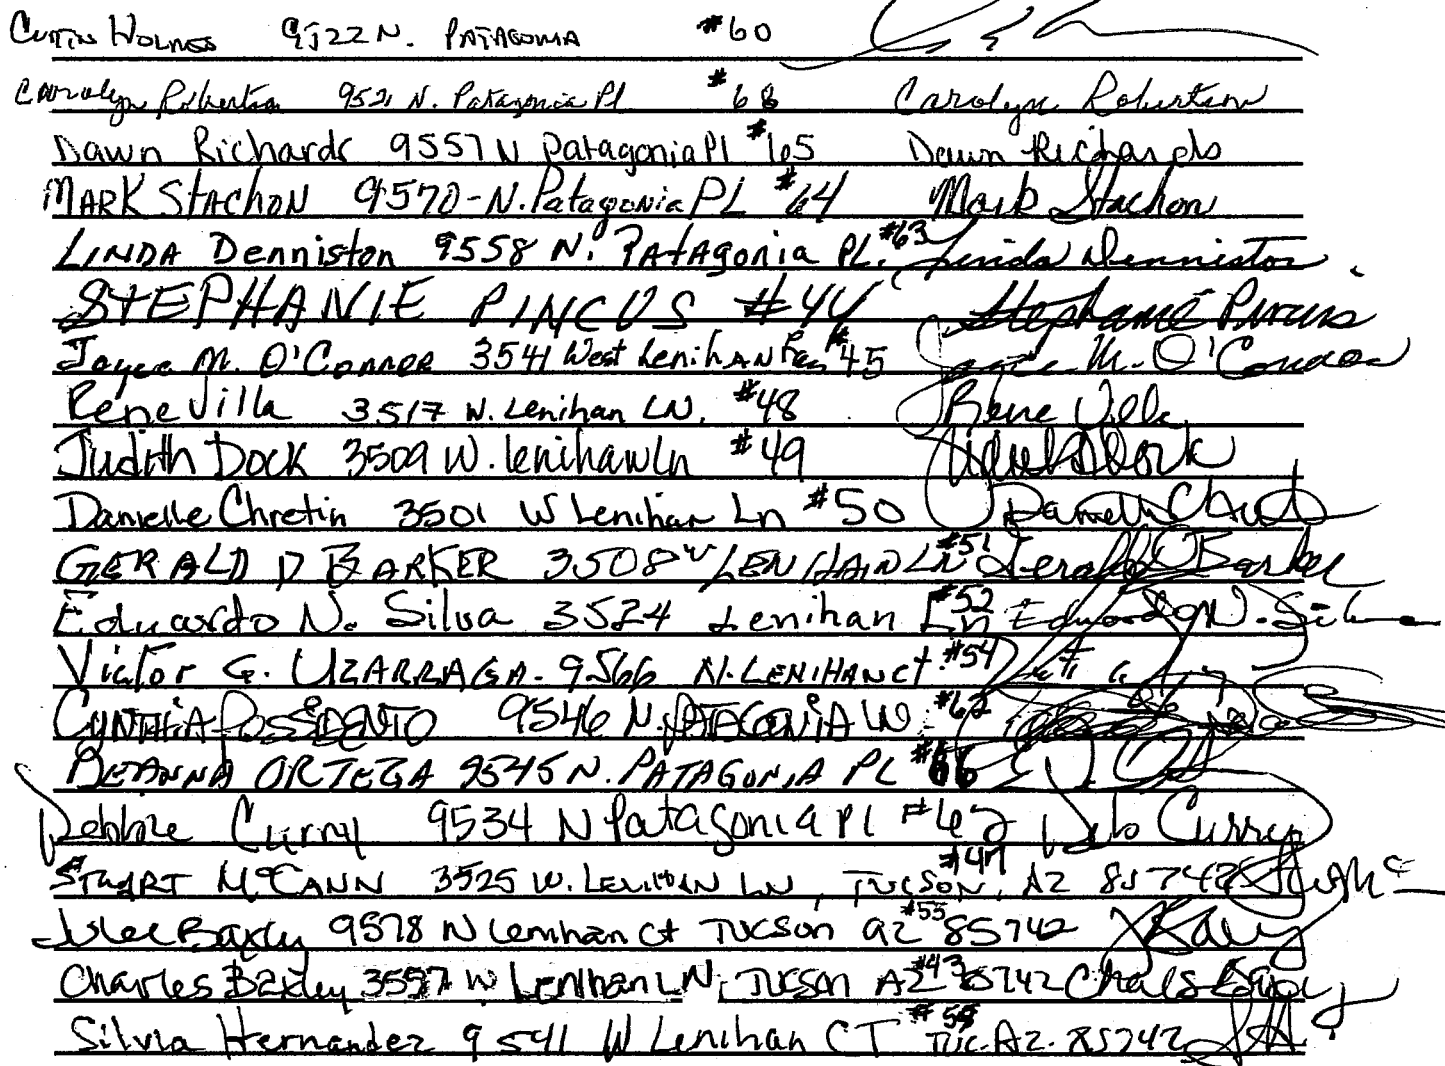 Curtis Holmes 9522 N. Patagonia #60
Carolyn Robertson 9521 N. Patagonia Pl #68 Carolyn Robertson
Dawn Richards 9557 N Patagonia Pl #65 Dawn Richards
Mark Stachon 9570-N. Patagonia PL #64 Mark Stachon
Linda Denniston 9558 N. Patagonia PL. #63 Linda Denniston
STEPHANIE PINCUS #44 Stephanie Pincus
Joyce M. O'Connor 3541 West Lenihan #45 Joyce M. O'Connor
Rene Villa 3517 W. Lenihan LN. #48 Rene Villa
Judith Dock 3509 W. Lenihan Ln #49 Judith Dock
Danielle Chretin 3501 W Lenihan Ln #50
GERALD D BARKER 3508 W LENIHAIN LN #51 Gerald D Barker
Eduardo N. Silva 3524 Lenihan Ln #52 Eduardo N. Silva
Victor G. UZARRAGA - 9566 N. LENIHAN ct. #54
CYNTHIA POSSIDENTO 9546 N. PATAGONIA LN #62
DEANNA ORTEGA 9545 N. PATAGONIA PL #66
Debbie Curry 9534 N Patagonia Pl #62 Deb Curry
STUART McCANN 3525 W. LENIHAN LN, TUCSON, AZ 85742 #47
Baxley 9578 N Lenihan Ct Tucson az #55 85742
Charles Baxley 3557 W Lenihan LN, Tucson AZ #43 85742 Charles Baxley
Silvia Hernandez 9541 W Lenihan CT TUC. AZ. 85742